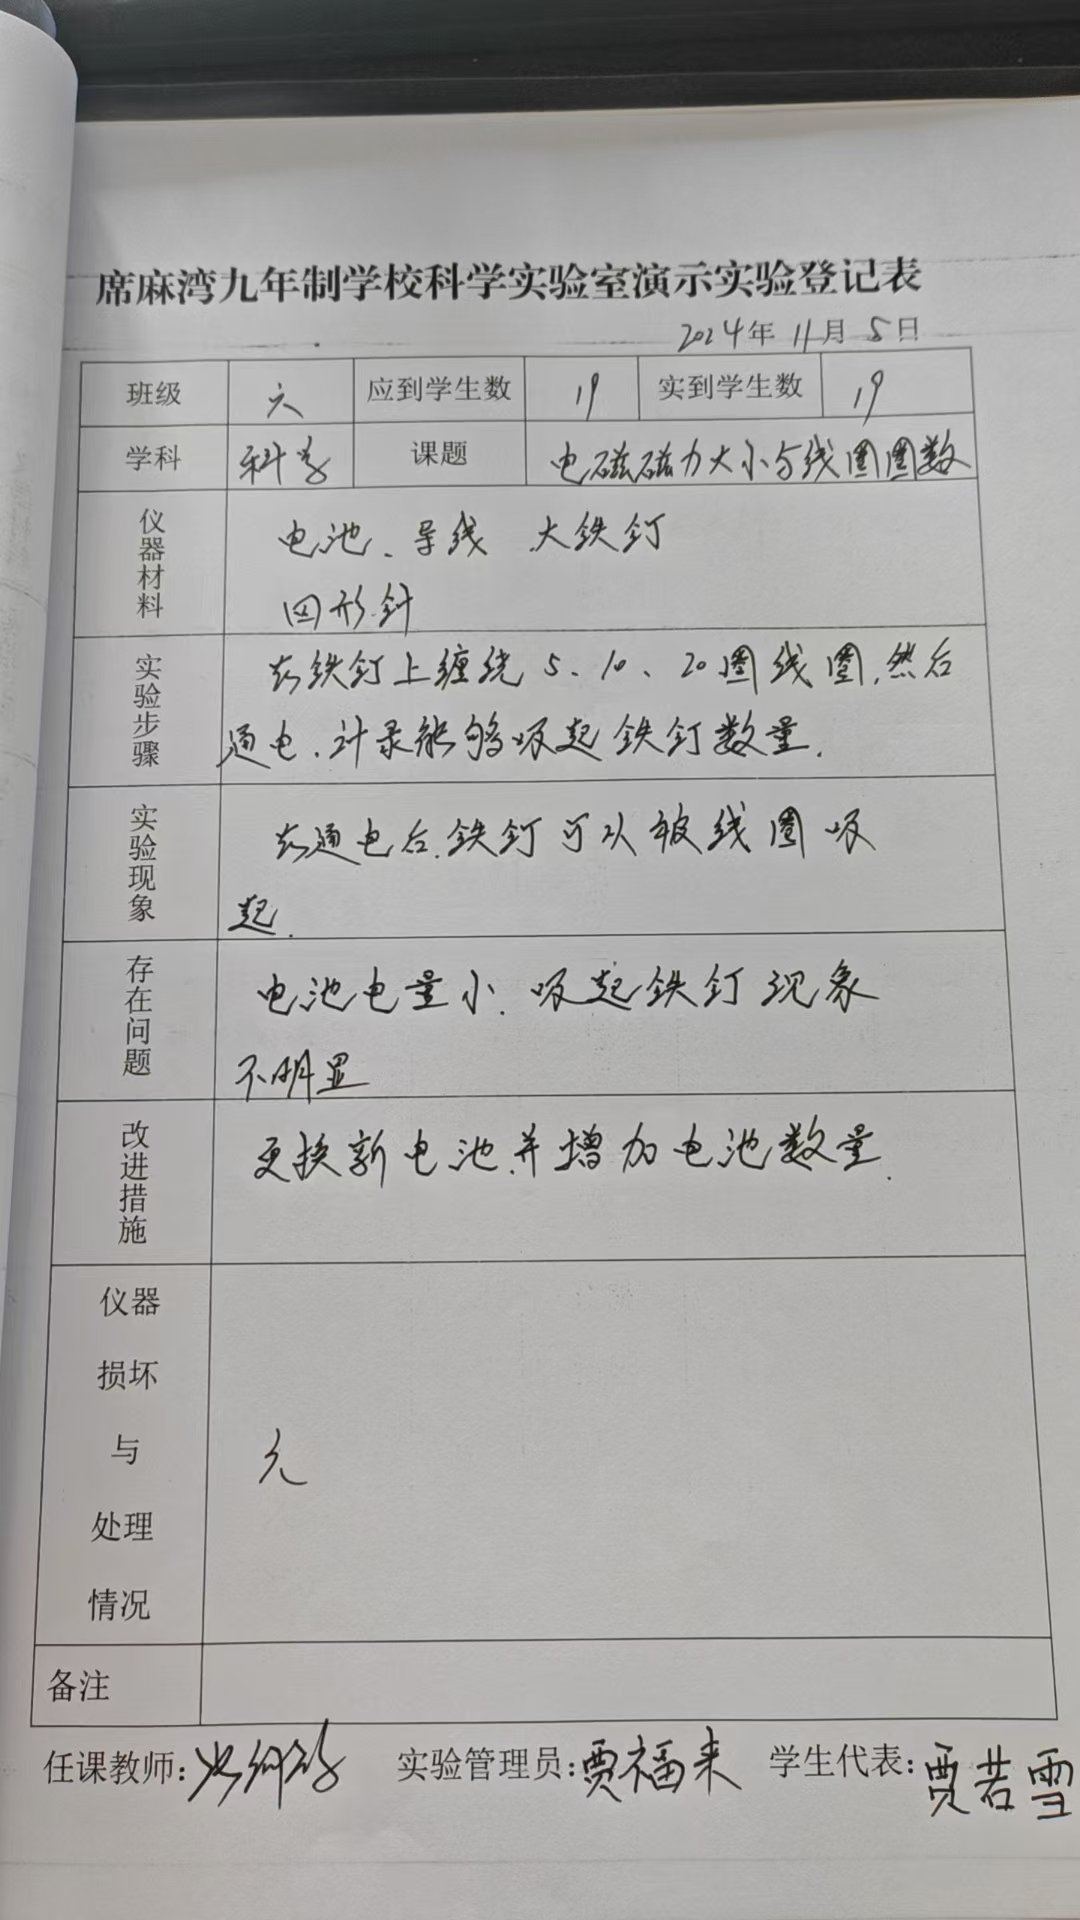 席麻湾九年制学校科学实验室演示实验登记表
2024年 11月 5日
班级 六 应到学生数 19 实到学生数 19
学科 科学 课题 电磁磁力大小与线圈圈数
仪器材料 电池、导线 大铁钉
回形针
实验步骤 在铁钉上缠绕 5、10、20圈线圈,然后
通电,计录能够吸起铁钉数量.
实验现象 在通电后,铁钉可以被线圈吸
起.
存在问题 电池电量小,吸起铁钉现象
不明显
改进措施 更换新电池,并增加电池数量.
仪器
损坏
与
处理
情况
无
备注
任课教师: 实验管理员:贾福来 学生代表:贾若雪